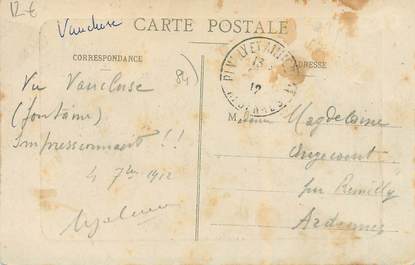 12 €
Vaucluse
CARTE POSTALE
CORRESPONDANCE
ADRESSE
84
Vu Vaucluse
(fontaine)
Impressionnant !!
4 7bre 1912
13
12
ARDENNES
M Magdelaine
Angecourt
par Remilly
Ardennes